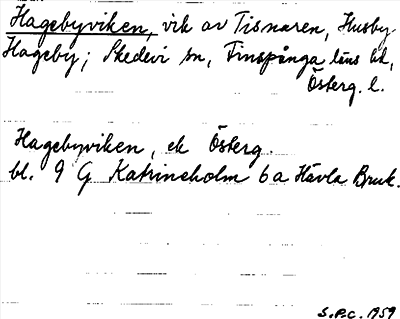 Hagebyviken, vik av Tisnaren, Husby-
Hageby; Skedevi sn, Finspånga läns hd,
Österg. l.
Hagebyviken, ek Österg.
bl. 9 G Katrineholm 6a Hävla Bruk.
S.P.C. 1959